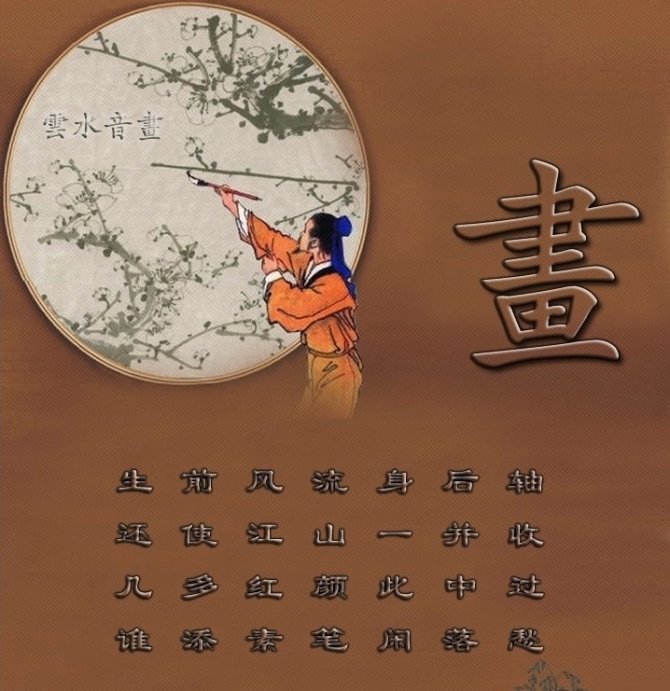 雲水音畫
畫
生前风流身后轴
还使江山一并收
几多红颜此中过
谁添素笔闲落愁